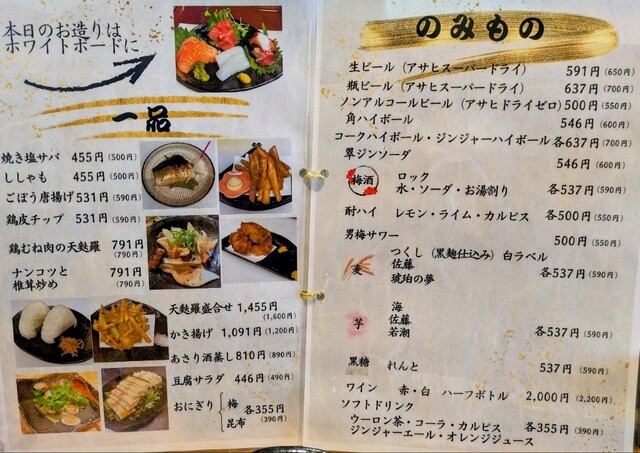 本日のお造りは
ホワイトボードに
一品
焼き塩サバ 455円(500円)
ししゃも 455円(500円)
ごぼう唐揚げ 531円(590円)
鶏皮チップ 531円(590円)
鶏むね肉の天麩羅 791円
(790円)
ナンコツと 791円
椎茸炒め (790円)
天麩羅盛合せ 1,455円
(1,600円)
かき揚げ 1,091円(1,200円)
あさり酒蒸し 810円(890円)
豆腐サラダ 446円(490円)
おにぎり 梅 各355円
昆布 (390円)
のみもの
生ビール(アサヒスーパードライ) 591円(650円)
瓶ビール(アサヒスーパードライ) 637円(700円)
ノンアルコールビール(アサヒドライゼロ) 500円(550円)
角ハイボール 546円(600円)
コークハイボール・ジンジャーハイボール 各637円(700円)
翠ジンソーダ 546円(600円)
梅酒 ロック
水・ソーダ・お湯割り 各537円(590円)
酎ハイ レモン・ライム・カルピス 各500円(550円)
男梅サワー 500円(550円)
麦 つくし(黒麹仕込み)白ラベル
佐藤
琥珀の夢 各537円(590円)
芋 海
佐藤
若潮 各537円(590円)
黒糖 れんと 537円(590円)
ワイン 赤・白 ハーフボトル 2,000円(2,200円)
ソフトドリンク
ウーロン茶・コーラ・カルピス 各355円(390円)
ジンジャーエール・オレンジジュース